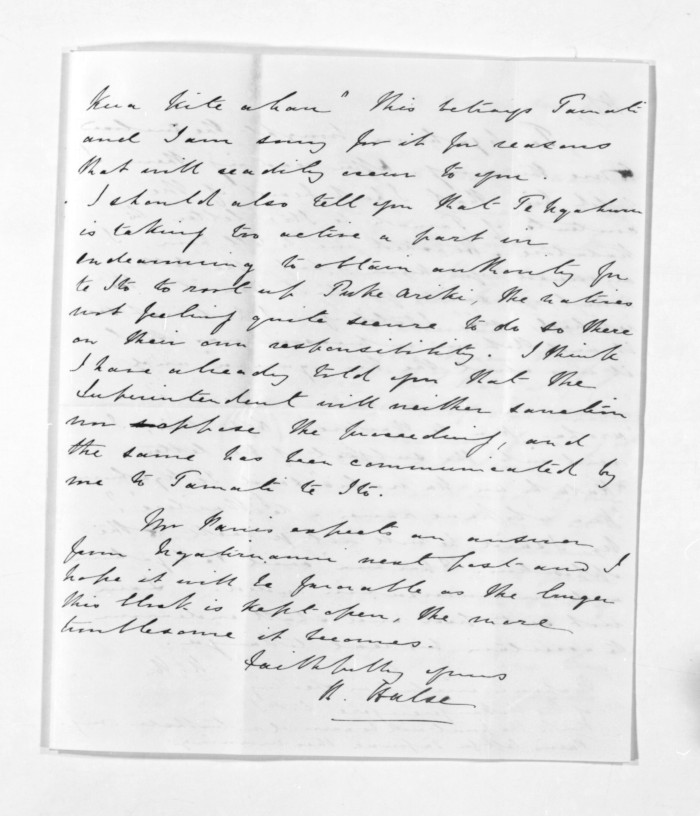 Kua kite ahau" This betrays Tamati
and I am sorry for it for reasons
that will readily occur to you.
I should also tell you that Te Ngahuru
is taking too active a part in
endeavouring to obtain authority for
te Ito to root up Puke Ariki, the natives
not feeling quite secure to do so there
on their own responsibility. I think
I have already told you that the
Superintendent will neither sanction
nor oppose the proceeding, and
the same has been communicated by
me to Tamati te Ito.
Mr Parris expects an answer
from Ngatiruanui next post and I
hope it will be favorable as the longer
this block is kept open, the more
troublesome it becomes.
Faithfully yours
H. Halse